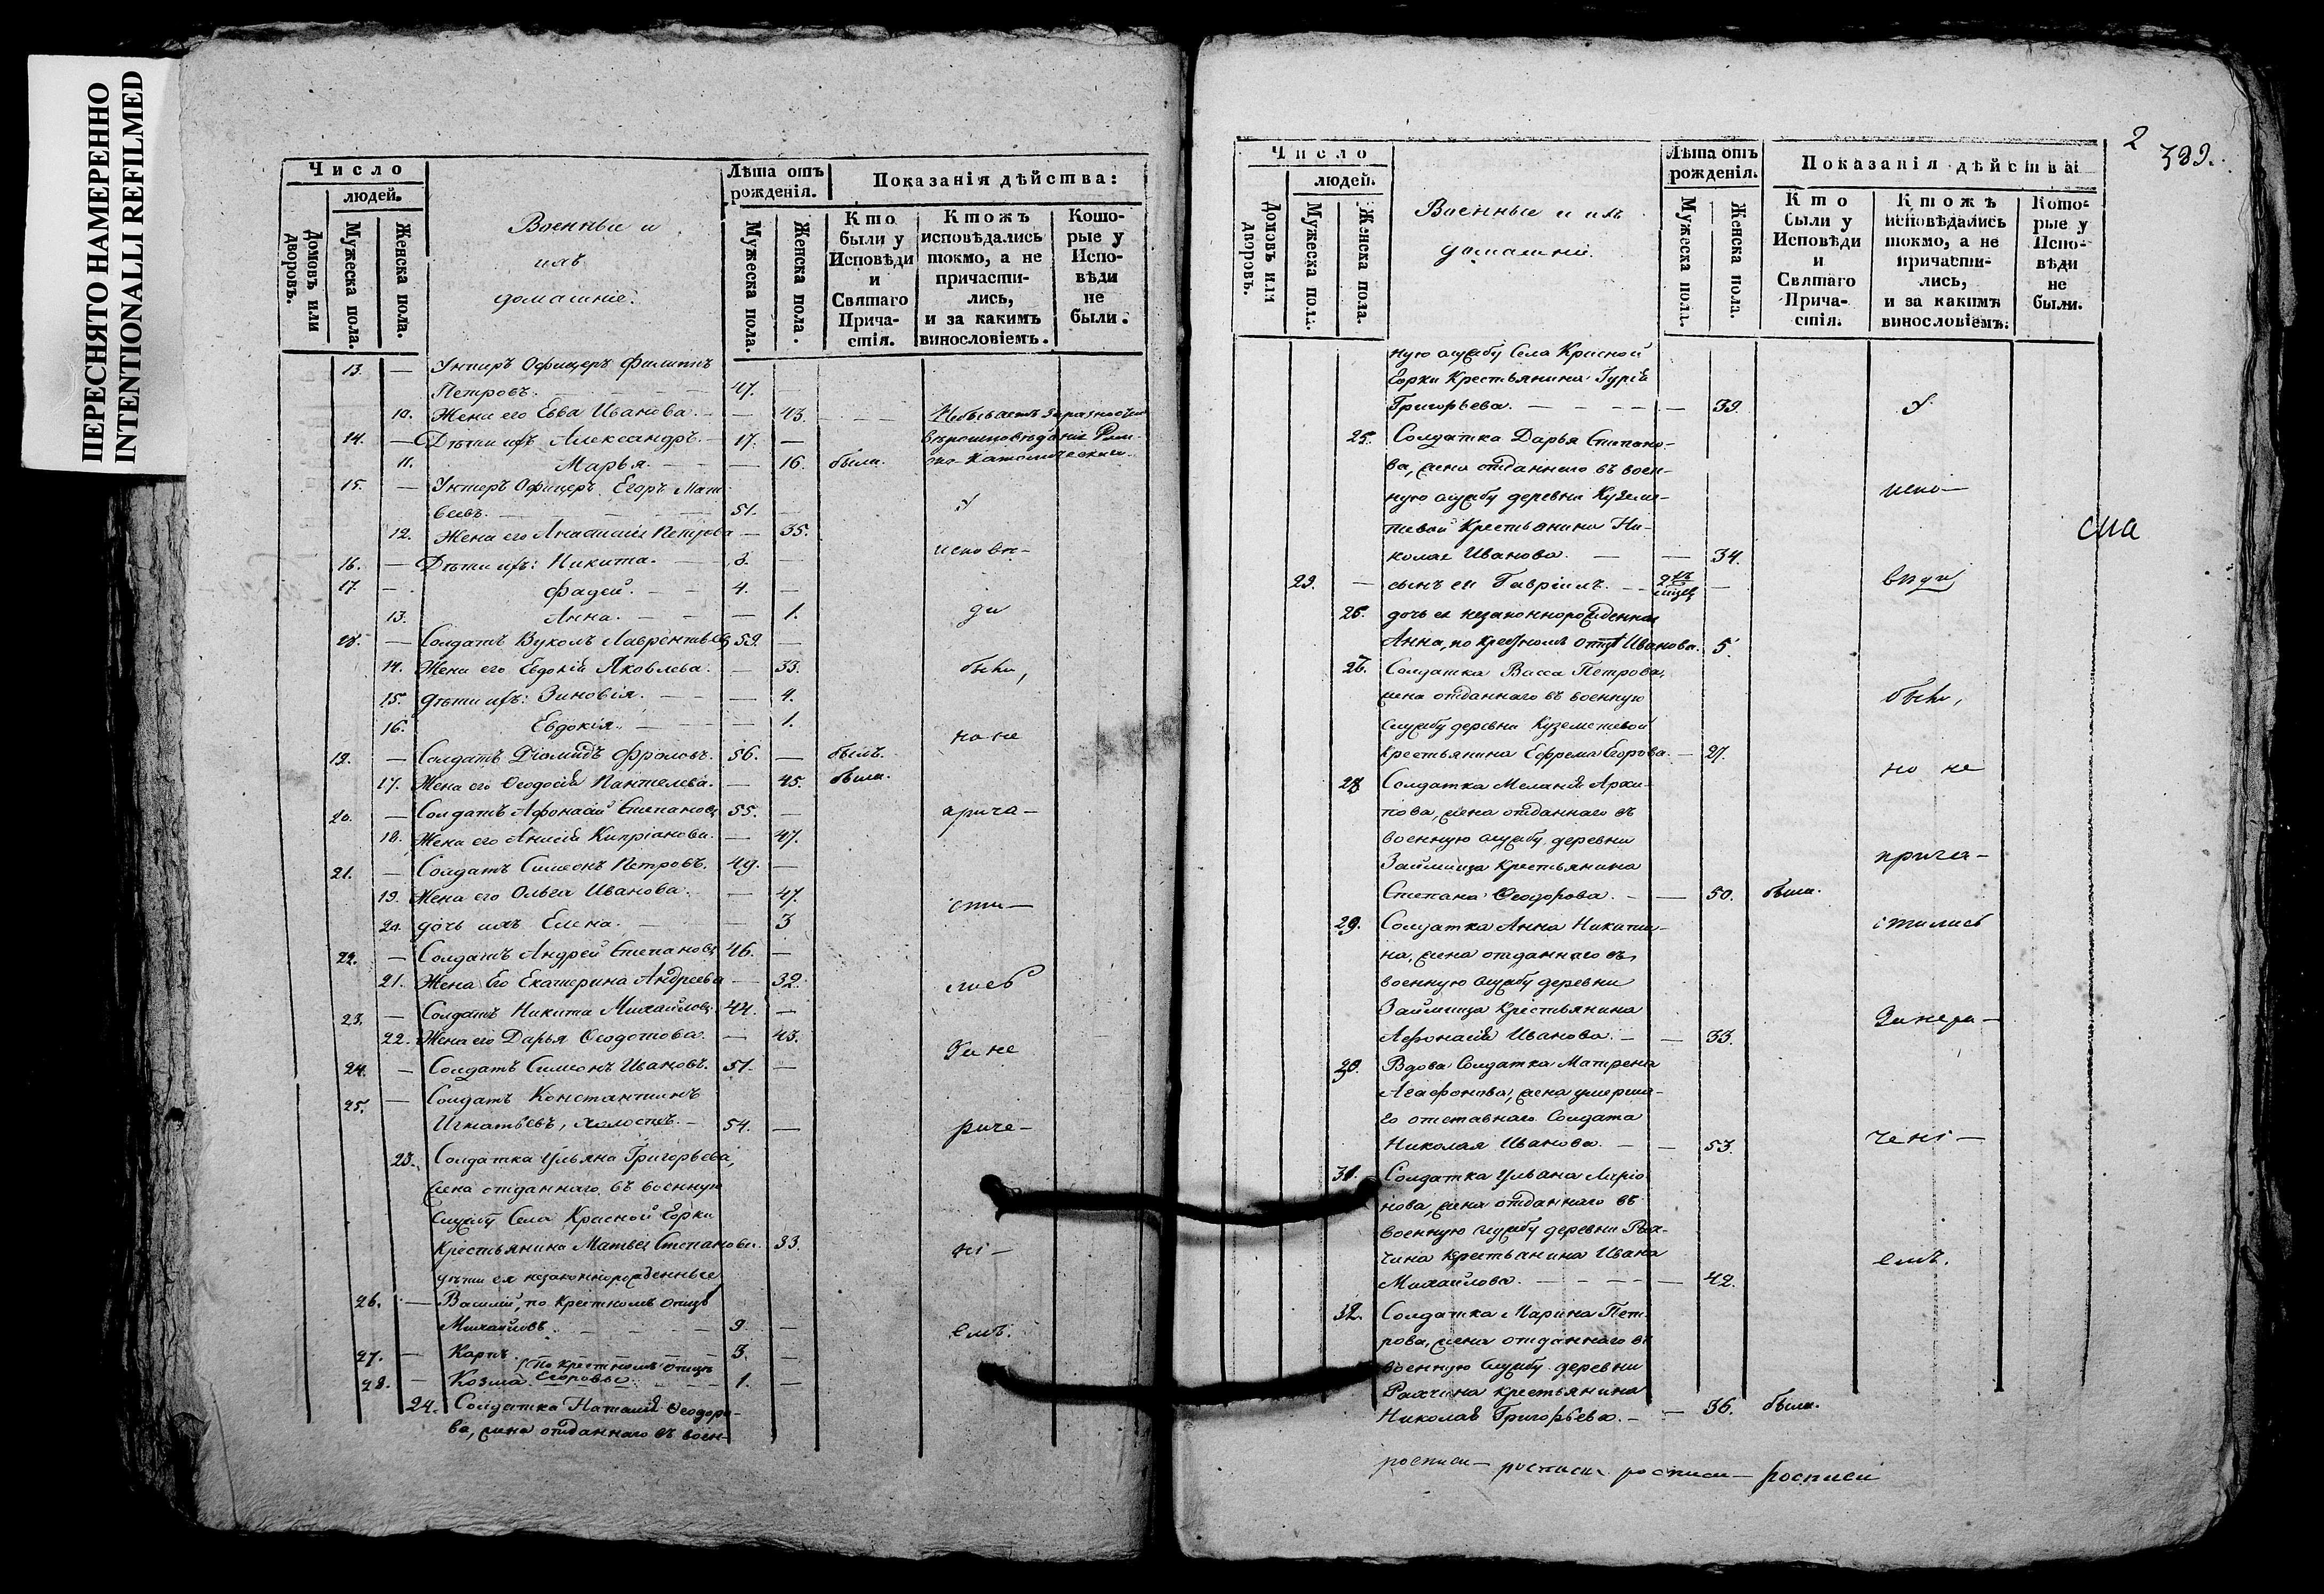 ПЕРЕСНЯТО НАМЕРЕННО
INTENTIONALLI REFILMED
Число
людей.
Домовъ или дворовъ.
Мужеска пола.
Женска пола.
Военные и
ихъ
домашніе.
Лѣта отъ
рожденія.
Мужеска пола.
Женска пола.
Показанія дѣйства:
Кто
были у
Исповѣди
и
Святаго
Прича-
стія.
Ктожъ
исповѣдались
токмо, а не
причасти-
лись,
и за какимъ
винословіемъ.
Кото-
рые у
Испо-
вѣди
не
были.
13. — Унтеръ Офицеръ Филиппъ
Петровъ. — 47.
10. Жена его Евва Иванова. — 43.
14. — Дѣти ихъ Александръ. — 17. —
11. Марья. — 16. были.
15. — Унтеръ Офицеръ Егоръ Мат
веевъ. — 51. — У
12. Жена его Анастасія Петрова — 35.
исповѣ-
16. — Дѣти ихъ: Никита. — 8. —
17. — Фадей. — 4. —
13. Анна. — 1. ди
18. — Солдатъ Вуколъ Лаврентьевъ 59. —
14. Жена его Евдокія Яковлева. — 33. были,
15. дѣти ихъ: Зиновія. — 4.
16. Евдокія. — 1.
но не
19. — Солдатъ Діомидъ Фроловъ. 56. — былъ.
17. Жена его Ѳеодосія Пантелева. — 45. была.
20. — Солдатъ Афонасій Степановъ 55. — прича—
18. Жена его Анисія Кипріанова. — 47.
21. — Солдатъ Симеонъ Петровъ. 49. —
19. Жена его Ольга Иванова. — 47.
сти—
20. дочь ихъ Елена. — 3
22. — Солдатъ Андрей Степановъ 46. —
21. Жена Его Екатерина Андреева — 32. лись
23. — Солдатъ Никита Михайловъ. 44. —
22. Жена его Дарья Ѳеодотова. — 43.
За не
24. — Солдатъ Симіонъ Ивановъ. 51. —
25. — Солдатъ Константинъ
Игнатьевъ, холостъ. — 54. — раче—
23. Солдатка Ульяна Григорьева,
жена отданнаго въ военную
Службу Села Красной Горки
Крестьянина Матвея Степанова. 33. ні—
дѣти ея незаконнорожденные
26. — Василій, по крестномъ отцѣ
Михайловъ. — 9. — емъ.
27. — Карпъ. — 3. —
по крестномъ отцѣ
28. — Козма. Егоровы. — 1. —
24. Солдатка Наталія Ѳеодоро-
ва, жена отданнаго въ воен-
2
399.
Число
людей.
Домовъ или дворовъ.
Мужеска пола.
Женска пола.
Военные и ихъ
домашніе.
Лѣта отъ
рожденія.
Мужеска пола.
Женска пола.
Показанія дѣйства
Кто
были у
Исповѣди
и
Святаго
Прича-
стія.
Ктожъ
исповѣдались
токмо, а не
причасти-
лись,
и за какимъ
винословіемъ.
Кото-
рые у
Испо-
вѣди
не
были.
ную службу Села Красной
Горки Крестьянина Гурія
Григорьева. — 39. У
25. Солдатка Дарья Степано-
ва, жена отданнаго въ воен-
ную службу деревни Куземе- испо—
тевой Крестьянина Ни-
колая Иванова. — 34.
29. — сынъ ея Гавріилъ. —
26. дочь ея незаконнорожденная
Анна, по крестномъ отцѣ Иванова. 5.
Солдатка Васса Петрова,
жена отданнаго въ военную были,
службу деревни Куземетевой
крестьянина Ефрема Егорова. — 27.
но не
28 Солдатка Меланія Архи-
пова, жена отданнаго въ
военную службу деревни
Займища Крестьянина прича—
Степана Ѳеодорова. — 50. была.
29. Солдатка Анна Никити- стились
на, жена отданнаго въ
военную службу деревни
Займища Крестьянина
Афонасія Иванова. — 33. За нера—
30. Вдова Солдатка Матрена
Агафонова, жена умерша-
го отставнаго Солдата
Николая Иванова. — 53. чені—
31. Солдатка Ульана Ларіо
нова, жена отданнаго въ
военную службу деревни Рах-
чина крестьянина Ивана емъ.
Михайлова. — 42.
32. Солдатка Марина Пет-
рова, жена отданнаго въ
военную службу деревни
Рахчина крестьянина
Николая Григорьева. — 36. была.
росписи— росписи росписи— росписи